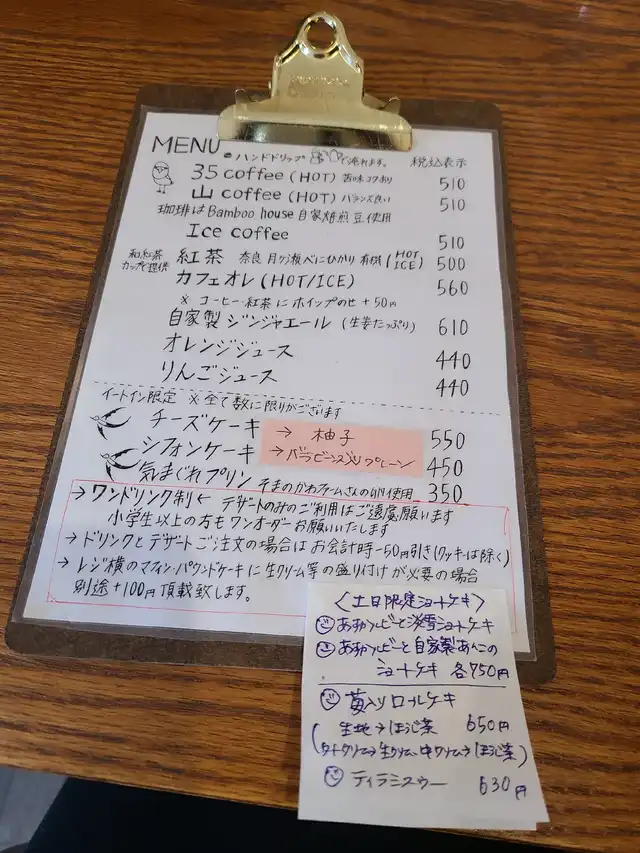 MENU
●ハンドドリップ で淹れます。 税込表示
35 coffee (HOT) 苦味コクあり 510
山 coffee (HOT) バランス良い 510
珈琲は Bamboo house 自家焙煎豆使用
Ice coffee 510
和紅茶カップで提供 紅茶 奈良 月ヶ瀬べにひかり 有機 (HOT ICE) 500
カフェオレ (HOT/ICE) 560
※ コーヒー・紅茶にホイップのせ +50円
自家製 ジンジャエール (生姜たっぷり) 610
オレンジジュース 440
りんごジュース 440
イートイン限定 ※全て数に限りがございます
チーズケーキ → 柚子 550
シフォンケーキ → バラビーンズ入りプレーン 450
気まぐれプリン そまのかわファームさんの卵使用 350
→ ワンドリンク制 ← デザートのみのご利用はご遠慮願います
小学生以上の方もワンオーダーお願いいたします
→ ドリンクとデザートご注文の場合はお会計時-50円引き(クッキーは除く)
→ レジ横のマフィン・パウンドケーキに生クリーム等の盛り付けが必要の場合
別途+100円頂載致します。
〈土日限定ショートケーキ〉
あすかルビーと淡雪ショートケーキ
あすかルビーと自家製あんこの
ショートケーキ 各750円
苺入りロールケーキ
生地→ほうじ茶 650円
生クリーム 中クリーム→ほうじ茶)
ティラミスゥー 630円